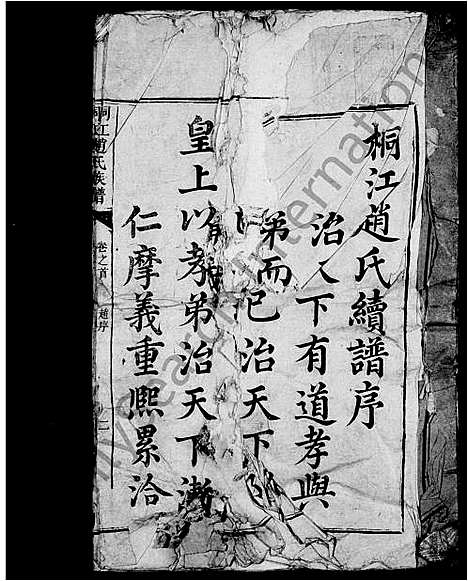 桐江趙氏續譜序
治天下有道孝與
弟而已治天下
皇上以孝弟治天下漸
仁摩義重熙累洽
桐江趙氏族譜
卷之首
趙序
一